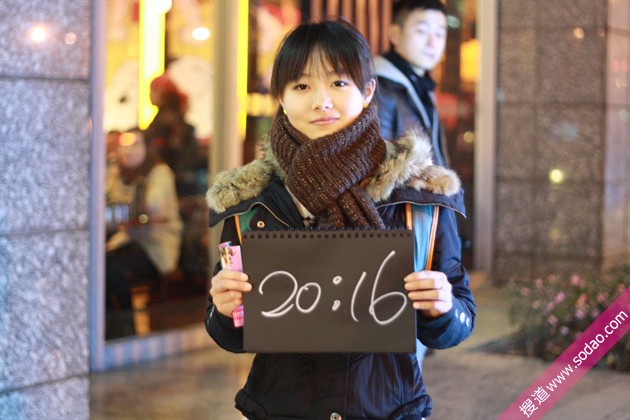 20:16
搜道www.sodao.com